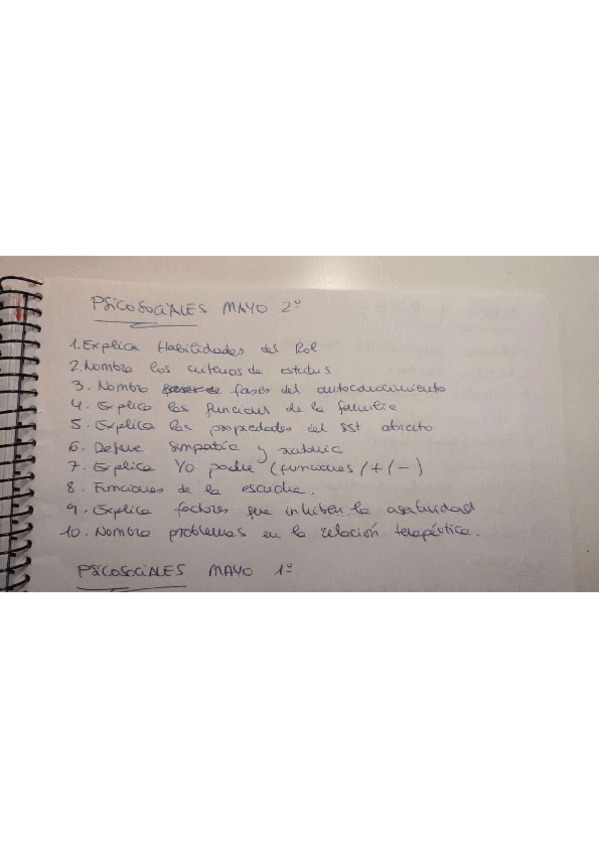 PSICOSOCIALES MAYO 2º
1. Explica Habilidades del Rol
2. Nombra los criterios de estatus
3. Nombra fases del autoconocimiento
4. Explica las funciones de la familia
5. Explica las propiedades del sist. abierto
6. Define simpatía y
7. Explica Yo padre (funciones / + / -)
8. Funciones de la escucha.
9. Explica factores que inhiben la asertividad
10. Nombra problemas en la relación terapéutica.
PSICOSOCIALES MAYO 1º